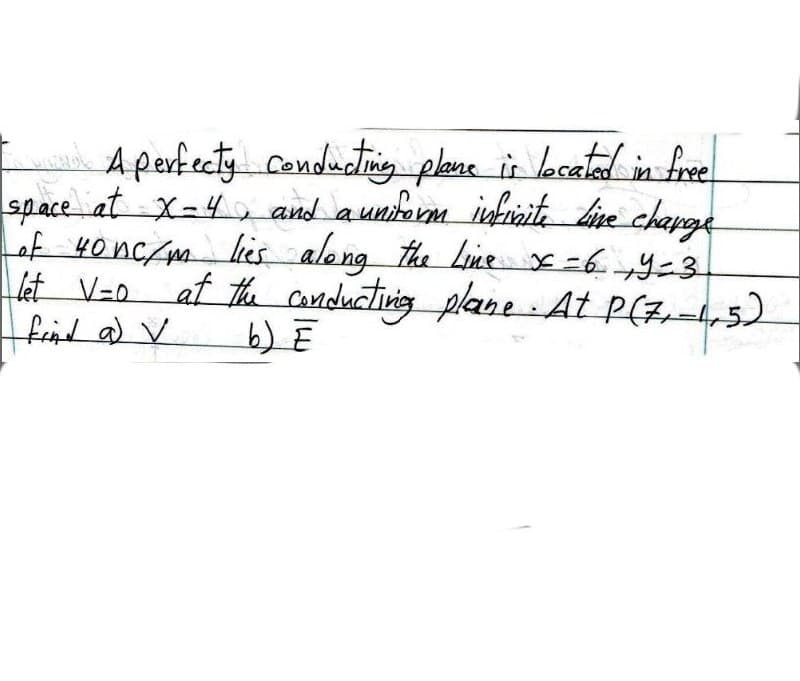 A perfecty conducting plane is located in free
space at x=4, and a uniform infinite line charge
of 40nc/m lies along the Line x=6, y=3.
let V=0 at the conducting plane. At P(7,-1,5)
find a) V b) E̅